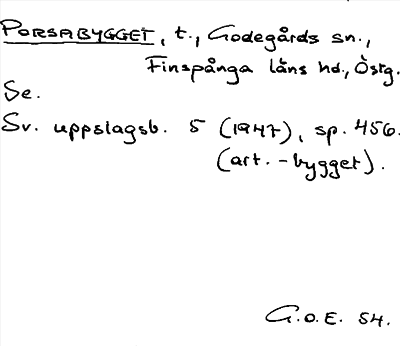 PORSABYGGET, t., Godegårds sn.,
Finspånga läns hd., Östg.
Se.
Sv. uppslagsb. 5 (1947), sp. 456.
(art. -bygget).
G.O.E. 54.